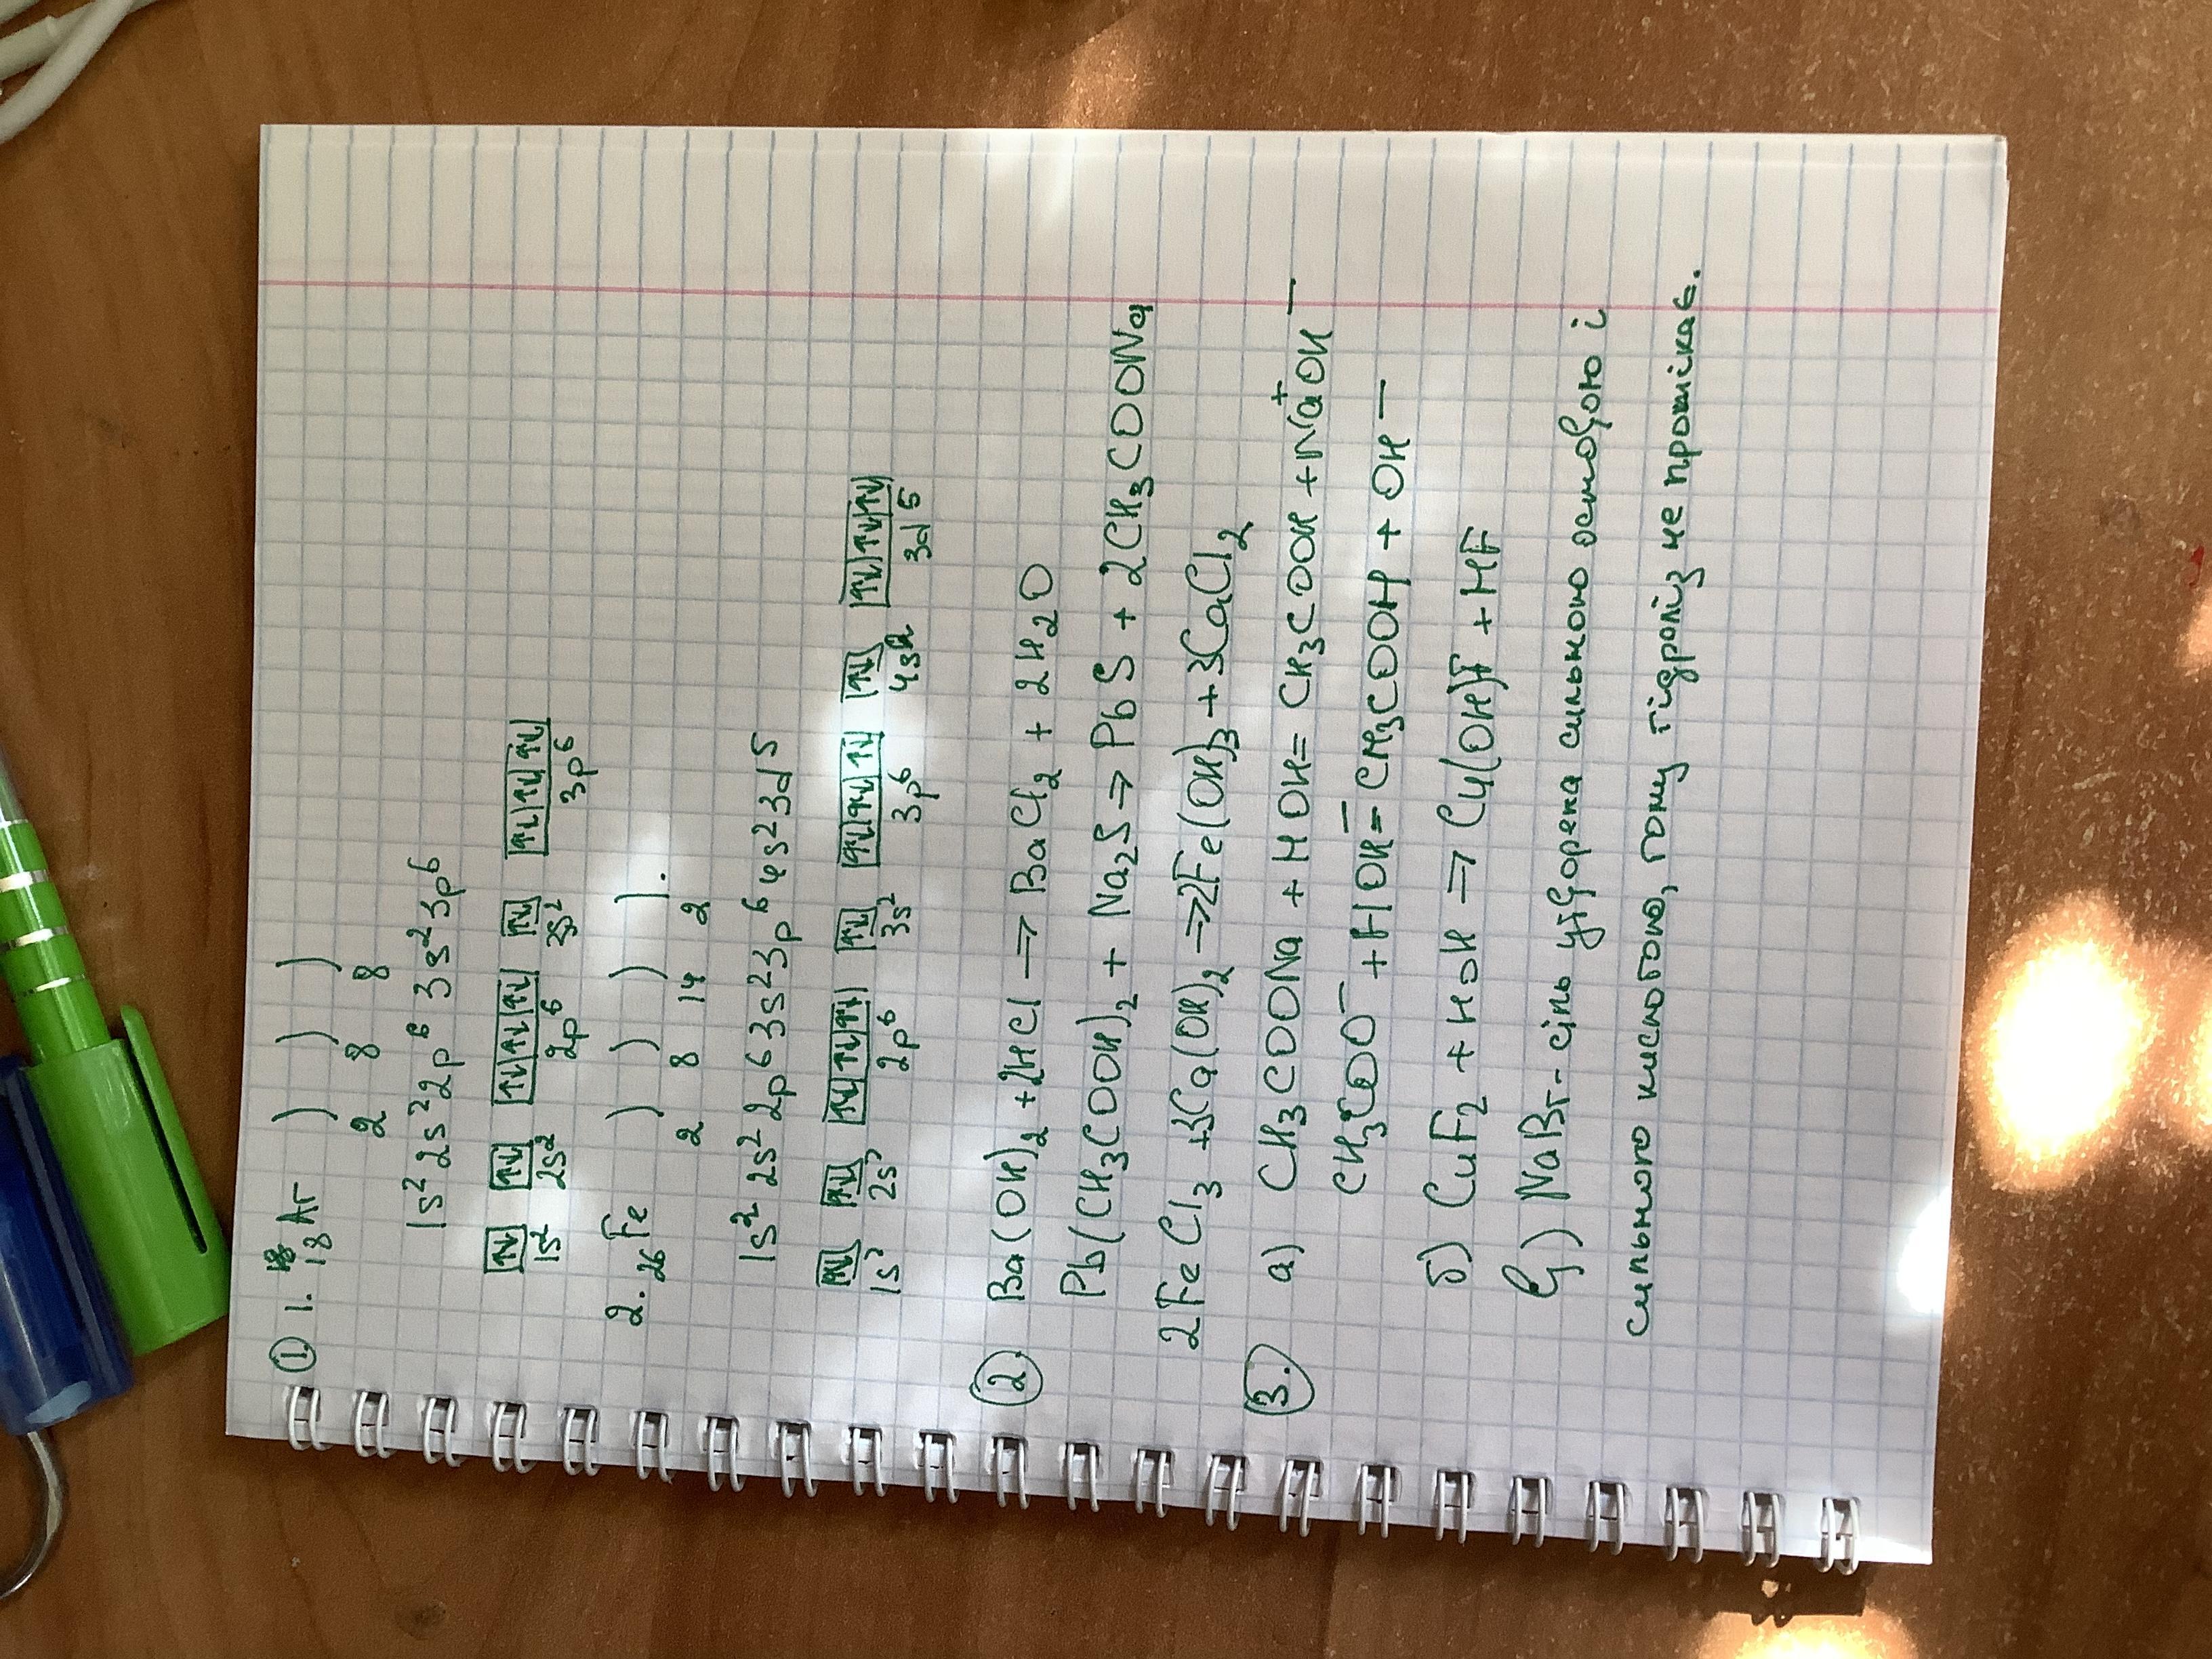 ① 1. 18Ar ) ) )
2 8 8
1s² 2s² 2p⁶ 3s² 3p⁶
↑↓ ↑↓ ↑↓ ↑↓ ↑↓ ↑↓ ↑↓ ↑↓ ↑↓
1s² 2s² 2p⁶ 3s² 3p⁶
2. 26Fe ) ) ) ).
2 8 14 2
1s² 2s² 2p⁶ 3s² 3p⁶ 4s² 3d5
↑↓ ↑↓ ↑↓ ↑↓ ↑↓ ↑↓ ↑↓ ↑↓ ↑↓ ↑↓ ↑↓ ↑↓ ↑↓
1s² 2s² 2p⁶ 3s² 3p⁶ 4s² 3d5
②. Ba(OH)₂ + 2HCl ⇒ BaCl₂ + 2H₂O
Pb(CH₃COOH)₂ + Na₂S ⇒ PbS + 2CH₃COONa
2FeCl₃ + 3Ca(OH)₂ ⇒ 2Fe(OH)₃ + 3CaCl₂
③. а) CH₃COONa + HOH = CH₃COOH + Na⁺OH⁻
CH₃COO⁻ + HOH⁻ = CH₃COOH + OH⁻
б) CuF₂ + HOH ⇒ Cu(OH)F + HF
в) NaBr - сіль утворена сильною основою і
сильною кислотою, тому гідроліз не протікає.